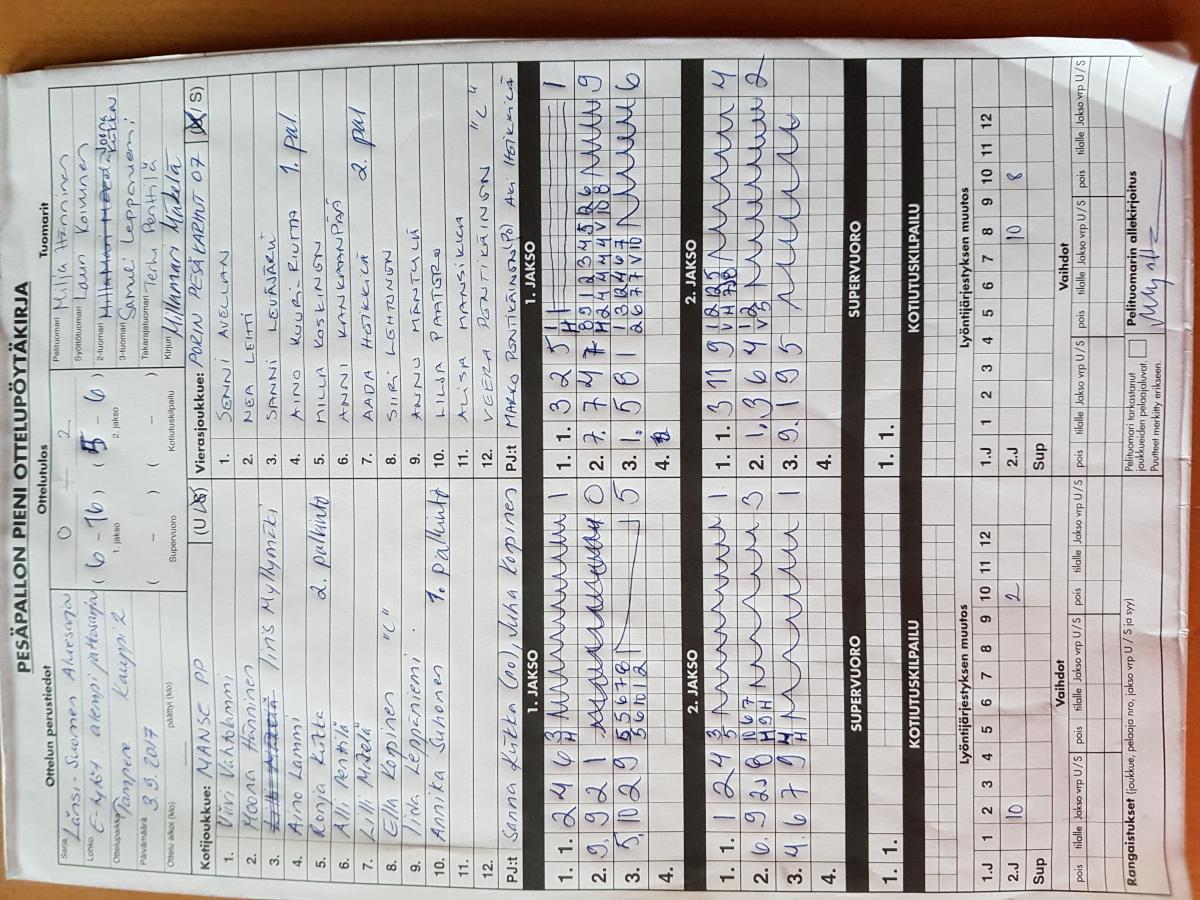 PESÄPALLON PIENI OTTELUPÖYTÄKIRJA
Ottelun perustiedot
Ottelutulos
Tuomarit
Sarja Länsi-Suomen Aluesarja
Lohko E-tytöt alempi jatkosarja
Ottelupaikka Tampere Kauppi 2
Päivämäärä 3.9.2017
Ottelu alkoi (klo)
päättyi (klo)
0 - 2
( 6 - 16 ) ( 5 - 6 )
1. jakso
2. jakso
( - ) ( - )
Supervuoro
Kotiutuskilpailu
Pelituomari Milja Hänninen
Syöttötuomari Lauri Koivunen
2-tuomari
3-tuomari Samuli Leppäniemi
Takarajatuomari Terhi Penttilä
Kirjuri Millamari Mäkelä
Kotijoukkue: MANSE PP
(U/S)
1. Viivi Vahtolammi
2. Moona Hänninen
3. Iiris Myllymäki
4. Aino Lammi
5. Ronja Kütka 2. palkinto
6. Alli Penttilä
7. Lilli Mäkelä
8. Ella Kopinen "C"
9. Iina Leppäniemi
10. Annika Suhonen 1. palkinto
11.
12.
PJ:t Sanna Kütka (po), Juha Kopinen
Vierasjoukkue: PORIN PESÄKARHUT 07
(U/S)
1. SENNI AVELLAN
2. NEA LEHTI
3. SANNI LEVÄJÄRVI
4. AINO KUURI-RIUTTA 1. pal.
5. MILLA KOSKINEN
6. ANNI KANKAANPÄÄ
7. AADA HEIKKILÄ 2. pal
8. SIIRI LEHTONEN
9. ANNU MÄNTYLÄ
10. LILJA PAATERO
11. ALISA MANSIKKA
12. VEERA PONTIKÄINEN "C"
PJ:t MARKO PONTIKÄINEN(PO) AKI HEIKKILÄ
1. JAKSO
1. JAKSO
1. 1. 2 4 6 3 1
2. 9. 9 2 1 0
3. 5. 10 2 9 5 5 6 7 8 1 5
4.
1. 1. 3 2 5 1 1
2. 7. 7 4 7 9
3. 1. 5 8 1 6
4.
2. JAKSO
2. JAKSO
1. 1. 1 2 4 3 1
2. 6. 9 2 8 10 6 7 3
3. 4. 6 7 9 4 1
4.
1. 1. 3 11 9 1 2 2 5 4
2. 1. 3 6 4 1 2 2
3. 9. 1 9 5
4.
SUPERVUORO
SUPERVUORO
1. 1.
1. 1.
KOTIUTUSKILPAILU
KOTIUTUSKILPAILU
Lyöntijärjestyksen muutos
Lyöntijärjestyksen muutos
1.J 1 2 3 4 5 6 7 8 9 10 11 12
2.J 10 2
Sup
1.J 1 2 3 4 5 6 7 8 9 10 11 12
2.J 10 8
Sup
Vaihdot
Vaihdot
pois tilalle Jakso vrp U / S pois tilalle Jakso vrp U / S pois tilalle Jakso vrp U / S
pois tilalle Jakso vrp U / S pois tilalle Jakso vrp U / S pois tilalle Jakso vrp U / S
Rangaistukset (joukkue, pelaaja nro, jakso vrp U / S ja syy)
Pelituomari tarkastanut
joukkueiden pelaajaluvat.
Puutteet merkitty erikseen.
Pelituomarin allekirjoitus